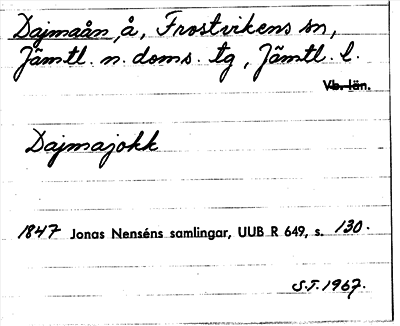 Dajmaån, å, Frostvikens sn,
Jämtl. n. doms. tg, Jämtl. l.
Vb. län.
Dajmajokk
1847 Jonas Nenséns samlingar, UUB R 649, s. 130.
S.F. 1967.